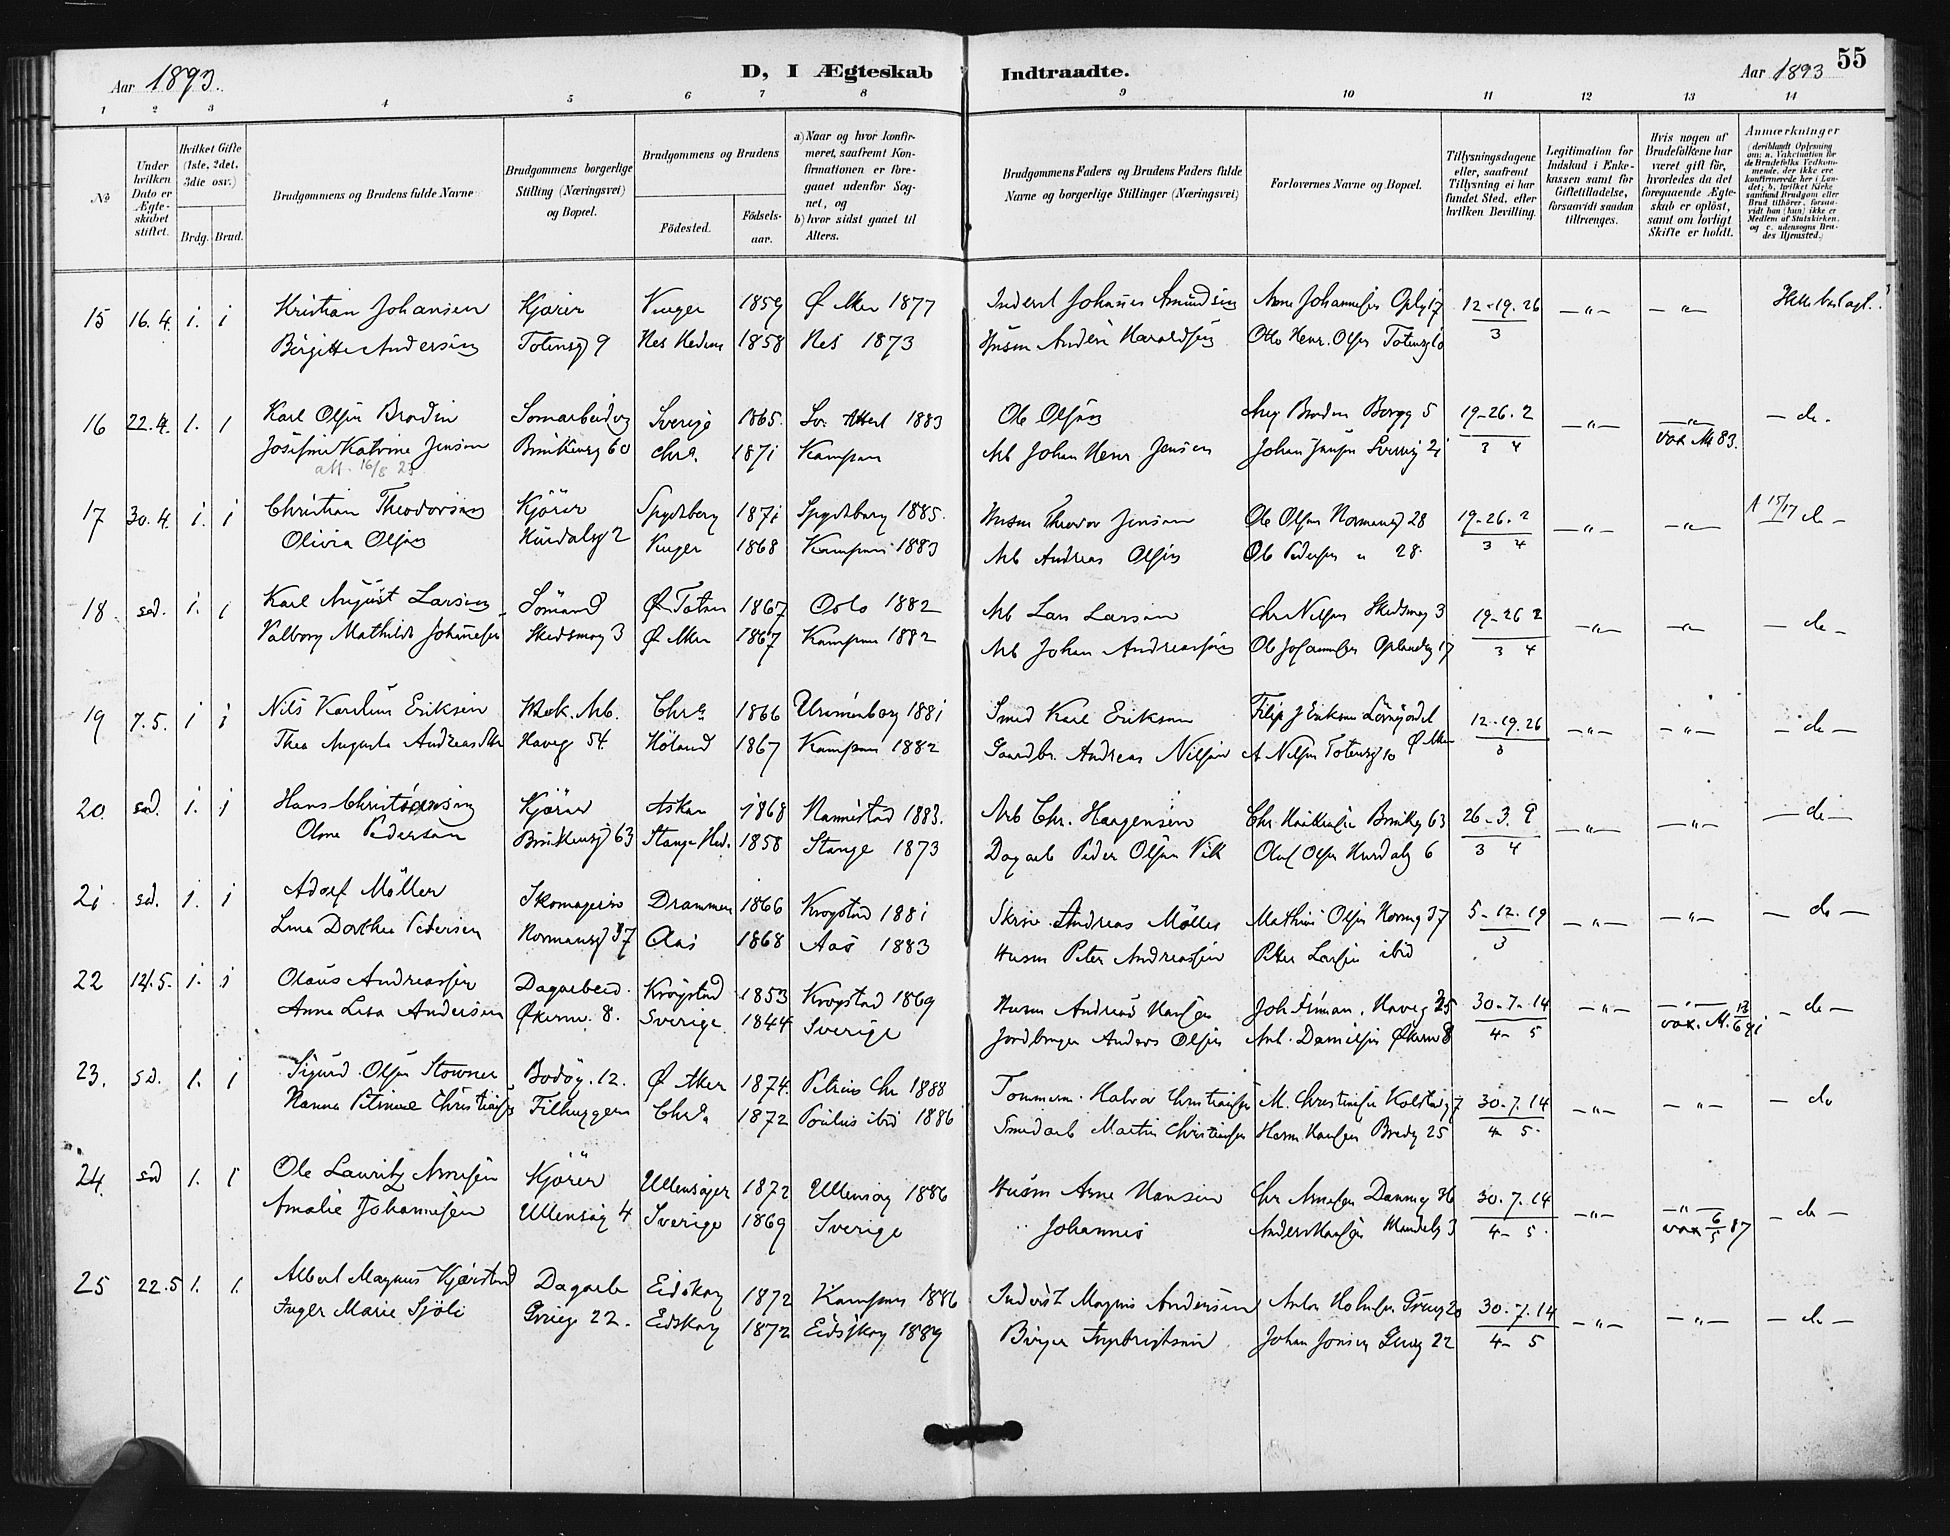 Aar 1893.
D, I Ægteskab Indtraadte.
Aar 1893
55
1 2 3 4 5 6 7 8 9 10 11 12 13 14
No
Under hvilken Dato er Ægteskabet stiftet.
Hvilket Gifte (1ste, 2det, 3die osv.)
Brdg. Brud.
Brudgommens og Brudens fulde Navne
Brudgommens borgerlige Stilling (Næringsvei) og Bopæl.
Brudgommens og Brudens
Födested.
Födselsaar.
a) Naar og hvor konfirmeret, saafremt Konfirmationen er foregaaet udenfor Sognet, og
b) hvor sidst gaaet til Alters.
Brudgommens Faders og Brudens Faders fulde Navne og borgerlige Stillinger (Næringsvei)
Forlovernes Navne og Bopæl.
Tillysningsdagene eller, saafremt Tillysning ei har fundet Sted, efter hvilken Bevilling.
Legitimation for Indskud i Enkekassen samt for Giftetilladelse, forsaavidt saadan tiltrænges.
Hvis nogen af Brudefolkene har været gift för, hvorledes da det foregaaende Ægteskab er oplöst, samt om lovligt Skifte er holdt.
Anmærkninger (deriblandt Oplysning om: a. Vakcination for de Brudefolks Vedkommende, der ikke ere konfirmerede her i Landet; b. hvilket Kirkesamfund Brudgom eller Brud tilhörer, forsaavidt han (hun) ikke er Medlem af Statskirken, og c. udensogns Brudes Hjemsted.)
15 16.4. 1. 1 Kristian Johansen Kjører Vinger 1859 Ø Aker 1877 Johannes Amundsen Arne Johannesen 17 12-19.26 —"— —"—
Birgitte Andersen Totensg 9 Nes Hedm 1858 Nes 1873 Husm Anders Haraldsen Otto Henr. Olsen Totensg 3
16 22.4. 1. 1 Karl Olsen Brodin Sverige 1865. 1883 Ole Olsen Brodin Borgg 5 19-26.2 —"— —"— — do -
Josefine Katrine Jensen Brinkensg 60 Chra. 1871 Kampen Arb Johan Henr Jensen Johan 21 3 4 83.
16/8 23
17 30.4. 1. 1 Christian Theodorsen Kjörer Spydeberg 1871 Spydeberg 1885. Husm Theodor Jensen Ole Olsen Normannsg 28 19-26.2 —"— —"— A 15/17 do —
Olivia Olsen Hurdalsg 2 Vinger 1868 Kampen 1883 Arb Andreas Olsen Ole Pedersen " 28. 3 4
18 sd. 1. 1 Karl August Larsen Sömand Ø Toten 1867 Oslo 1882 Arb Lars Larsen Chr Nilsen Skedsmog 3 19-26 2 —"— —"— — do -
Valborg Mathilde Johannesen Skedsmog 3 Ø Aker 1867 Kampen 1882 Arb Johan Andreassen Ole Johannesen Oplandsg 17 3 4
19 7.5. 1 1 Nils Karelius Eriksen Mek. Arb. Chra 1866 Uranienborg 1881 Smed Karl Eriksen Filip J Eriksen 12-19.26 —"— —"— — do —
Thea Augusta Andreasdtr Haveg 54. Höland 1867 Kampen 1882 Gaardbr. Andreas Nilsen A Nilsen Totensg 10 Ø Aker 3
20. sd. 1. 1 Hans Christiansen Kjörer Asker 1868 Nannestad 1883. Arb Chr. Haagensen Chr. Brinkeg 63 26-3.9 —"— —"— — do —
Oline Pedersen Brinkensg 63 Stange Hed. 1858 Stange 1873 Dagarb Peder Olsen Vik Oluf Olsen Hurdalsg 6 3 4
21. sd. 1. 1 Adolf Möller Skomagersv Drammen 1866 Krogstad 1881 Skriv Andreas Möller Mathias Olsen Normg 37 5-12.19 —"— —"— — do —
Lina Dorthea Pedersen Normansg 37 Aas 1868 Aas 1883 Husm Peter Andreassen Peter Larsen ibid 3
22 12.5. 1. 1 Olaus Andreassen Dagarbeid. Krogstad 1853 Krogstad 1869 Husm Andreas Hansen Joh. Haveg 25 30-7-14 —"— —"— — do —
Anna Lisa Andersen Økernv. 8. Sverige 1844 Sverige Jordbruger Anders Olsen Ant. Danielsen Økernv 8 4- 5
23. sd. 1. 1 Sigurd Olsen Stowner Bodög. 12. Ø Aker 1874. Petrus Chr 1888 Tommerm. Halvor Christiansen M. Christiansen Kolstadg 7 30-7.14 —"— —"— — do
Nanna Petrine Christiansen Filhugger Chra 1872 Paulus ibid 1886 Smedarb Martin Christiansen Herm Hansen Bredg 25 4- 5.
24. sd 1. 1 Ole Lauritz Arnesen Kjörer Ullensager 1872 Ullensag 1886 Husm Arne Hansen Chr Arnesen Danmg 36 30-7.14 —"— —"— — do —
Amalie Johannesen Ullensag 4 Sverige 1869 Sverige " Johannes Anders Hansen Mandalsg 3 4- 5. vax 6/5 87
25 22.5 1. 1. Albert Magnus Kjærstad Dagarb Eidskog 1872 Kampen 1886 Inderst Magnus Andersen Anton Holmsen Grüneg 20 30-7.14 —"— —"— — do —
Inger Marie Sjöli 22. Eidskog 1872 Eidskog 1889 Birger Ingebrigtsen Johan Jonsen 22 4- 5